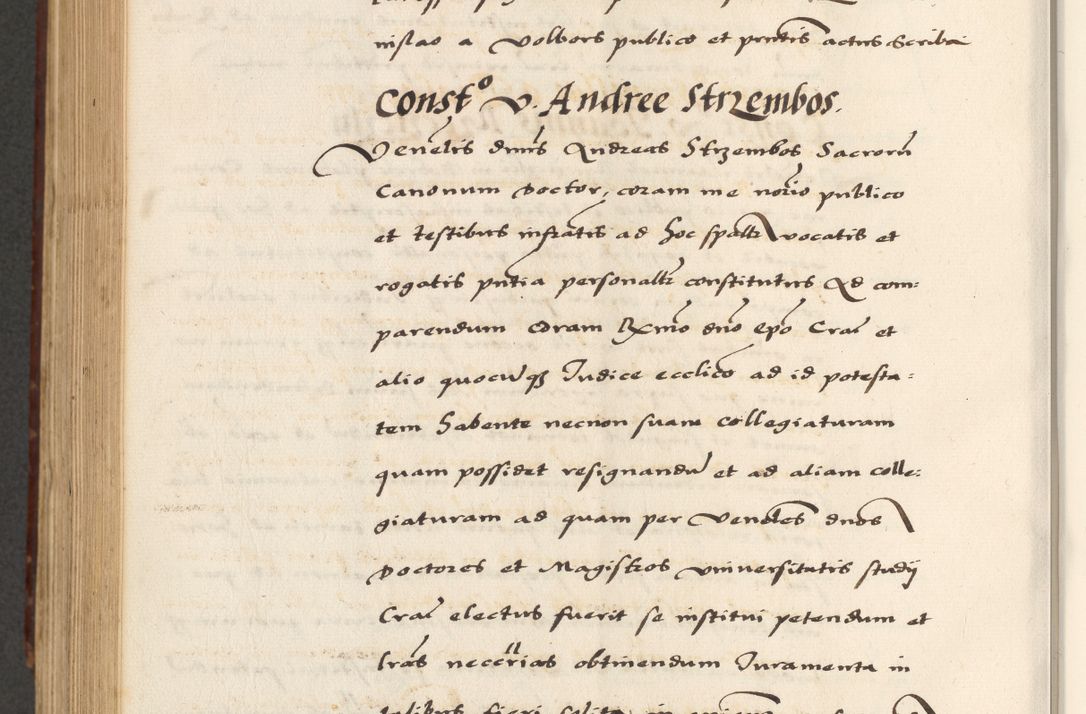 nislao a Volbors publico et pntis actus Scriba
Constº v. Andree Strzembos.
Venelis dnus Andreas Strzembos Sacrorũ
Canonum Doctor, coram me norio publico
et testibus infratis ad hoc spaltr vocatis et
rogatis pntia personaltr constitutus Ad com:
parendum coram Rxmo dno Epo Crac et
alio quocũqʒ Iudice ecclico ad id potesta:
tem habente necnon suam collegiaturam
quam possidet resignandũ et ad aliam colle:
giaturam ad quam per Venbles dnos
Doctores et Magistros universitatis studij
Crac electus fuerit se institui petendum et
lras neccrias obtinendum Iuramenta in
talibus fieri solita in